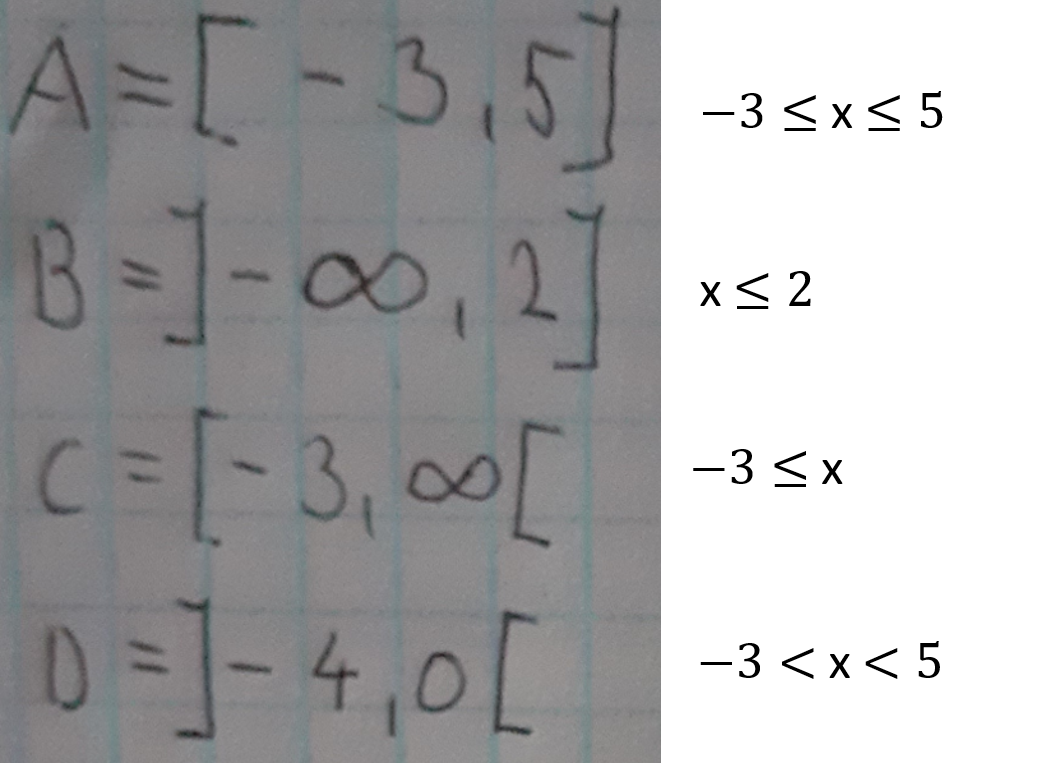 A = [ - 3 , 5 ] −3 ≤ x ≤ 5
B = ] - ∞ , 2 ] x ≤ 2
C = [ - 3 , ∞ [ −3 ≤ x
D = ] - 4 , 0 [ −3 < x < 5